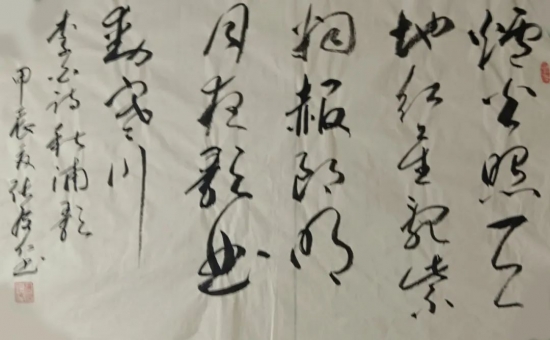 爐火照天
地红星亂紫
烟赧郎明
月夜歌曲
動寒川
李白诗秋浦歌
甲辰夏